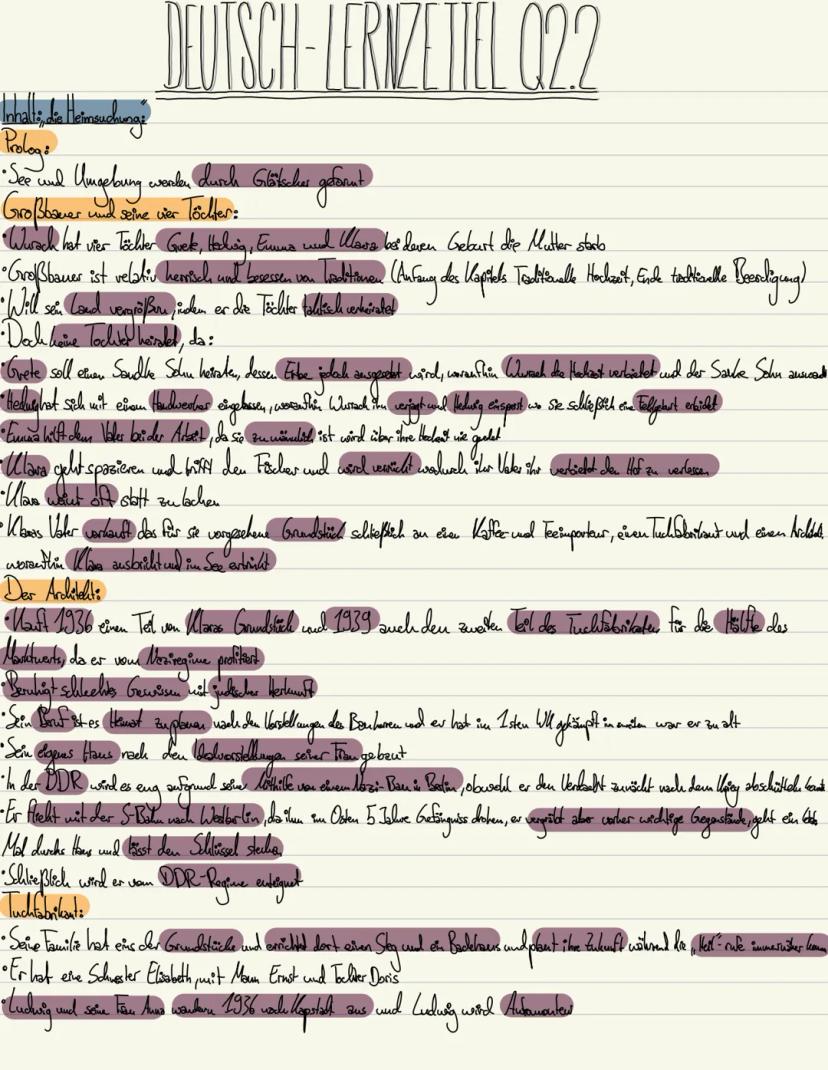 DEUTSCH-LERNZETTEL Q2.2
Inhalt: „die Heimsuchung"
Prolog:
·See und Umgebung werden durch Gletscher geformt
Großbauer und seine vier Töchter:
·Wurach hat vier Töchter Grete, Hedwig, Emma und Klara bei deren Geburt die Mutter starb
·Großbauer ist relativ herrisch und besessen von Traditionen (Anfang des Kapitels Traditionelle Hochzeit, Ende traditionelle Beerdigung)
·Will sein Land vergrößern, indem er die Töchter taktisch verheiratet
·Doch keine Tochter heiratet, da:
·Grete soll einen Sandke Sohn heiraten, dessen Erbe jedoch ausgesetzt wird, woraufhin Wurach die Hochzeit verbietet und der Sanke Sohn
·Hedwig hat sich mit einem Handwerker eingelassen, woraufhin Wurach ihn verjagt und Hedwig einsperrt wo sie schließlich eine Fehlgeburt erleidet
·Emma hilft dem Vater bei der Arbeit, da sie zu männlich ist wird über ihre Hochzeit nie geredet
·Klara geht spazieren und trifft den Fischer und wird verrückt wodurch ihr Vater ihr verbietet den Hof zu verlassen
·Klara weint oft statt zu lachen
·Klaras Vater verkauft das für sie vorgesehene Grundstück schließlich an einen Kaffee und Teeimporteur, einen Tuchfabrikant und einen Architekt,
woraufhin Klara ausbricht und im See ertrinkt
Der Architekt:
·Kauft 1936 einen Teil von Klaras Grundstück und 1939 auch den zweiten Teil des Tuchfabrikaten für die Hälfte des
Marktwerts, da er vom Naziregime profitiert
·Beruhigt schlechtes Gewissen mit jüdischer Herkunft
·Sein Beruf ist es Heimat zu planen nach den Vorstellungen des Bauherren und er hat im 1sten WK gekämpft im zweiten war er zu alt
·Sein eigenes Haus nach den Idealvorstellungen seiner Frau gebaut
·In der DDR wird es eng aufgrund seiner Mithilfe von einem Nazi-Bau in Berlin, obwohl er den Verdacht zunächst nach dem Krieg abschütteln konnte
·Er flieht mit der S-Bahn nach Westberlin, da ihm im Osten 5 Jahre Gefängniss drohen, er vergräbt aber vorher wichtige Gegenstände, geht ein letztes
Mal durchs Haus und lässt den Schlüssel stecken
·Schließlich wird er vom DDR-Regime enteignet
Tuchfabrikant:
·Seine Familie hat eins der Grundstücke und errichtet dort einen Steg und ein Badehaus und plant ihre Zukunft während die „Heil"-rufe immer näher kommen
·Er hat eine Schwester Elisabeth, mit Mann Ernst und Tochter Doris
·Ludwig und seine Frau Anna wandern 1936 nach Kapstadt aus und Ludwig wird